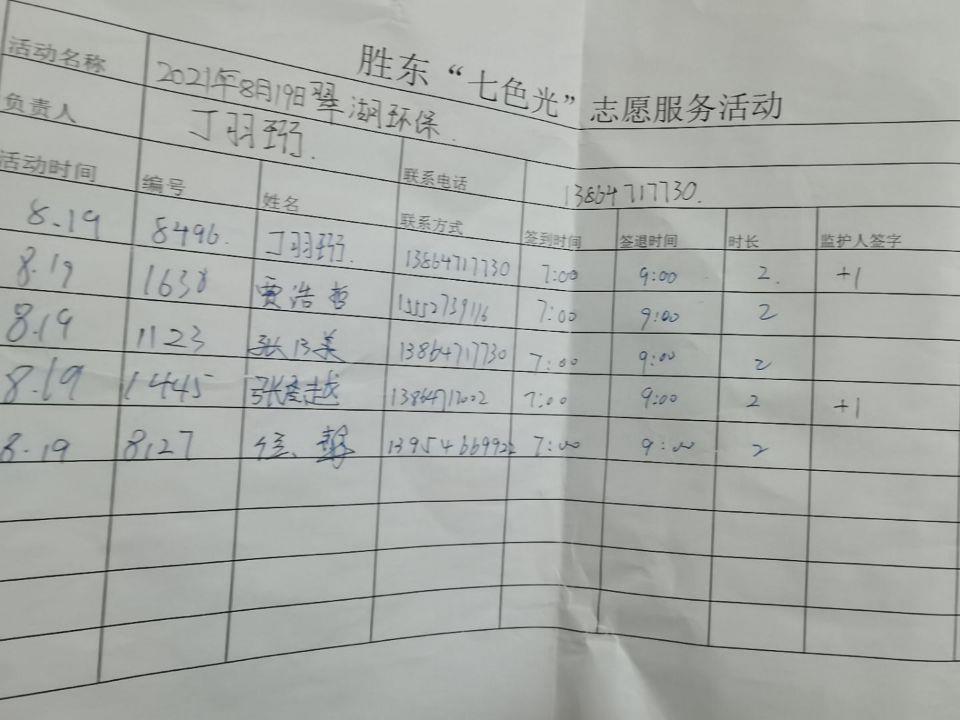 胜东“七色光”志愿服务活动
活动名称 2021年8月19日翠湖环保.
负责人 丁羽弼. 联系电话 13864717730.
活动时间 编号 姓名 联系方式 签到时间 签退时间 时长 监护人签字
8.19 8496. 丁羽弼. 13864717730 7:00 9:00 2. +1
8.19 1638 贾浩哲 13552739116 7:00 9:00 2
8.19 1123 张 13864717730 7:00 9:00 2
8.19 1445 张 越 13864717002 7:00 9:00 2 +1
8.19 8127 13954669922 7:00 9:00 2